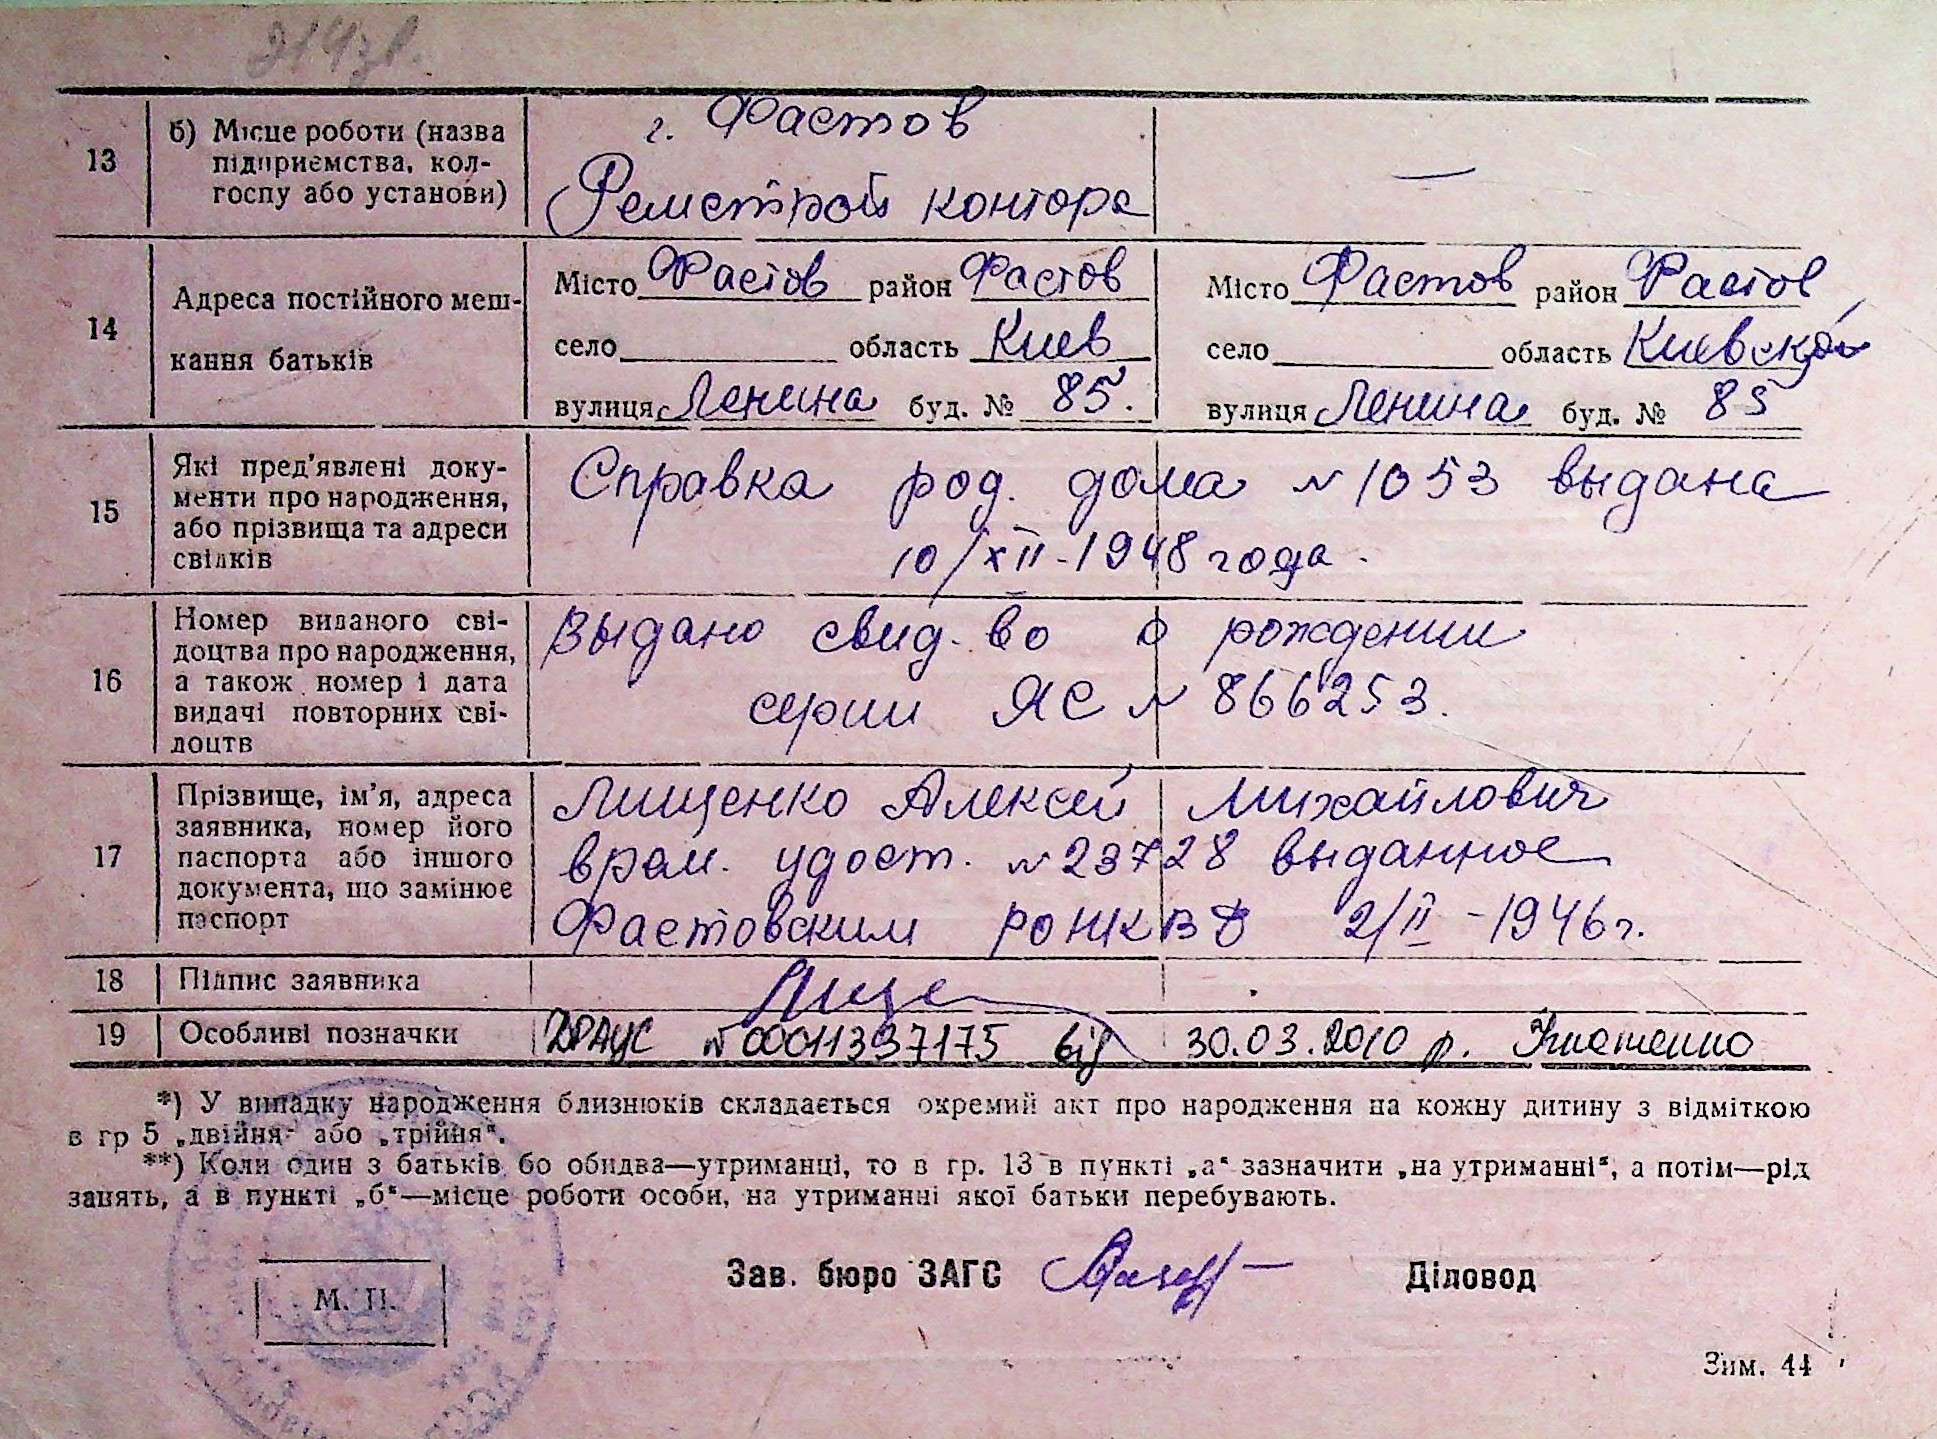 13
б) Місце роботи (назва
підприємства, кол-
госпу або установи)
г. Фастов
Ремстрой контора
—
14
Адреса постійного меш-
кання батьків
Місто Фастов район Фастов
село область Киев
вулиця Ленина буд. № 85.
Місто Фастов район Фастов
село область Киевской
вулиця Ленина буд. № 85
15
Які пред'явлені доку-
менти про народження,
або прізвища та адреси
свідків
Справка род. дома № 1053 выдана
10/XII-1948 года.
16
Номер виданого сві-
доцтва про народження,
а також номер і дата
видачі повторних сві-
доцтв
Выдано свид-во о рождении
серии ЯС № 866253.
17
Прізвище, ім'я, адреса
заявника, номер його
паспорта або іншого
документа, що замінює
паспорт
Лищенко Алексей Михайлович
врем. удост. № 23728 выданное
Фастовским РОНКВД 2/II-1946 г.
18
Підпис заявника
Лище
19
Особливі позначки
ДРАЦС № 00011397175 від 30.03.2010 р.
*) У випадку народження близнюків складається окремий акт про народження на кожну дитину з відміткою
в гр 5 „двійня" або „трійня".
**) Коли один з батьків бо обидва—утриманці, то в гр. 13 в пункті „а" зазначити „на утриманні", а потім—рід
занять, а в пункті „б"—місце роботи особи, на утриманні якої батьки перебувають.
М. П.
Зав. бюро ЗАГС
Діловод
Зим. 44